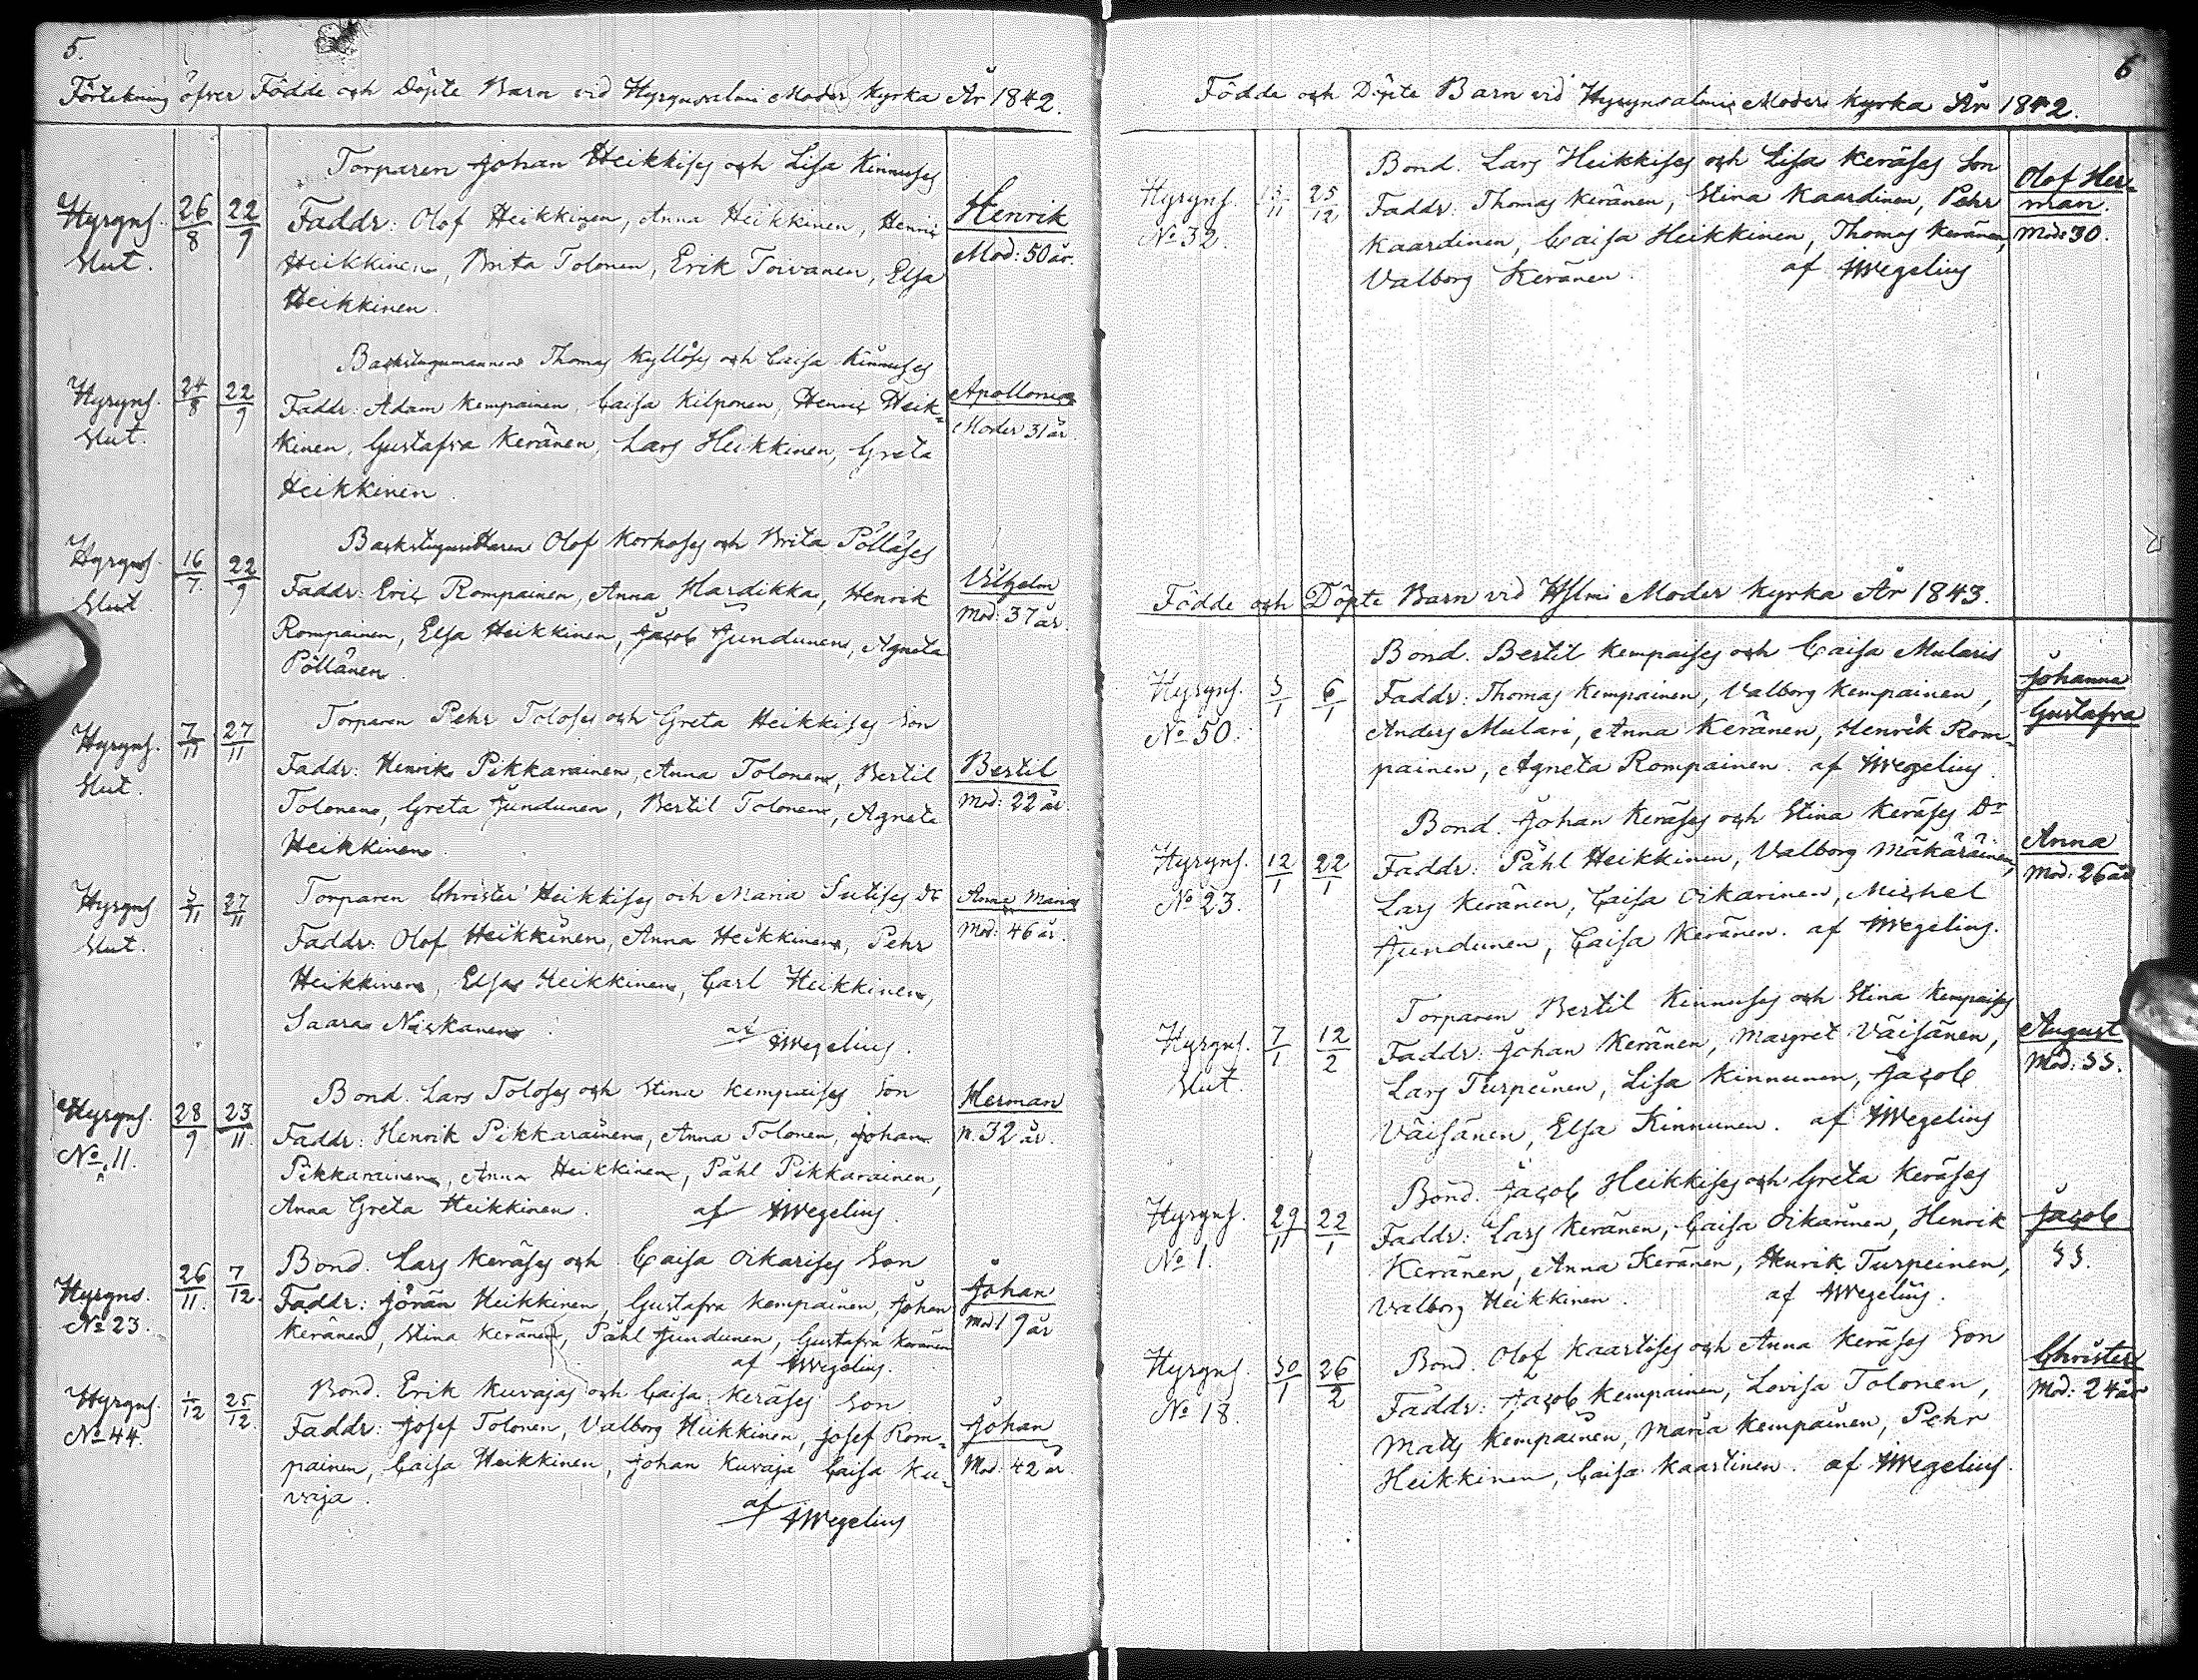 5.
Förtekning öfver Födde och Döpte Barn vid Hyrynsalmi Moder Kyrka År 1842.
Torparen Johan Heikkises och Lisa Kinnuses
Hyryns. 26/8 22/9 Faddr: Olof Heikkinen, Anna Heikkinen, Henric Henrik
Slut. Heikkinen, Brita Tolonen, Erik Toivanen, Elsa Mod: 50 år.
Heikkinen.
Backstugumannen Thomas Kyllöses och Caisa Kinnuses
Hyryns. 24/8 22/9 Faddr: Adam Kempainen, Caisa Kilponen, Henric Heik= Apollonia
Slut. kinen, Gustafva Keränen, Lars Heikkinen, Greta Moder 31 år.
Heikkinen.
Backstugusittaren Olof Korhoses och Brita Pölläses
Hyryns. 16/7 22/9 Faddr: Eric Rompainen, Anna Hardikka, Henrik Vilhelm
Slut Rompainen, Elsa Heikkinen, Jacob Jundunen, Agneta Mod: 37 år.
Pöllänen.
Torparen Pehr Toloses och Greta Heikkises Son
Hyryns. 7/11 27/11 Faddr: Henrik Pikkarainen, Anna Tolonen, Bertil Bertil
Slut. Tolonen, Greta Jundunen, Bertil Tolonen, Agneta Mod: 22 år.
Heikkinen.
Hyryns 3/11 27/11 Torparen Christer Heikkises och Maria Sutises Dr Anna Maria
Slut. Faddr: Olof Heikkinen, Anna Heikkinen, Pehr Mod: 46 år.
Heikkinen, Elsa Heikkinen, Carl Heikkinen,
Saara Niskanen. af JWegelius.
Bond. Lars Toloses och Stina Kempaises Son Herman
Hyryns. 28/9 23/11 Faddr: Henrik Pikkarainen, Anna Tolonen, Johan m. 32 år.
No 11. Pikkarainen, Anna Heikkinen, Påhl Pikkarainen,
Anna Greta Heikkinen. af JWegelius.
Bond. Lars Keräses och Caisa Oikarises Son
Hyryns. 26/11. 7/12. Faddr: Jöran Heikkinen, Gustafva Kempainen, Johan Johan
No 23. Keränen, Stina Keränen, Påhl Jundunen, Gustafva Keränen Mod 19 år
af JWegelius.
Bond. Erik Kuvajas och Caisa Keräses Son
Hyryns. 1/12 25/12. Faddr: Josef Tolonen, Valborg Heikkinen, Josef Rom= Johan
No 44. painen, Caisa Heikkinen, Johan Kuvaja Caisa Ku= Mod: 42 år.
vaja. af JWegelius
6
Födde och Döpte Barn vid Hyrynsalmi Moder Kyrka År 1842.
Bond. Lars Heikkises och Lisa Keräses Son Olof Her=
Hyryns. 13/11 25/12 Faddr: Thomas Keränen, Stina Kaardinen, Pehr man.
No 32. Kaardinen, Caisa Heikkinen, Thomas Keränen, Mod: 30.
Valborg Keränen. af JWegelius
Födde och Döpte Barn vid Hslmi Moder Kyrka År 1843.
Bond. Bertil Kempaises och Caisa Mularis Johanna
Hyryns. 3/1 6/1 Faddr: Thomas Kempainen, Valborg Kempainen, Gustafva
No 50. Anders Mulari, Anna Keränen, Henrik Rom=
painen, Agneta Rompainen. af JWegelius.
Bond. Johan Keräses och Stina Keräses Dr Anna
Hyryns. 12/1 22/1 Faddr: Påhl Heikkinen, Valborg Mäkäräinen, Mod: 26 år
No 23. Lars Keränen, Caisa Oikarinen, Michel
Jundunen, Caisa Keränen. af JWegelius.
Torparen Bertil Kinnuses och Stina Kempaises
Hyryns. 7/1 12/2 Faddr: Johan Keränen, Margret Väisänen, August
Slut. Lars Turpeinen, Lisa Kinnunen, Jacob Mod: 33.
Väisänen, Elsa Kinnunen. af JWegelius
Bond. Jacob Heikkises och Greta Keräses
Hyryns. 29/11 22/1 Faddr: Lars Keränen, Caisa Oikarinen, Henrik Jacob
No 1. Keränen, Anna Keränen, Henrik Turpeinen, 33.
Valborg Heikkinen. af JWegelius.
Bond. Olof Kaartises och Anna Keräses Son Christer
Hyryns. 30/1 26/2 Faddr: Jacob Kempainen, Lovisa Tolonen, Mod: 24 år
No 18. Matts Kempainen, Maria Kempainen, Pehr
Heikkinen, Caisa Kaartinen. af JWegelius.